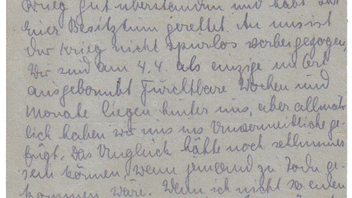 Krieg gut überstanden und habt
Euer Besitztum gerettet. An uns ist
der Krieg nicht spurlos vorbeigezogen.
Wir sind am 4.4 als einzige im Ort
ausgebombt. Furchtbare Wochen und
Monate liegen hinter uns, aber allmäh-
lich haben wir uns ins Unvermeidliche ge-
fügt. Das Unglück hätte noch schlimmer
sein können, wenn jemand zu Tode ge-
kommen wäre. Wenn ich nicht so einen